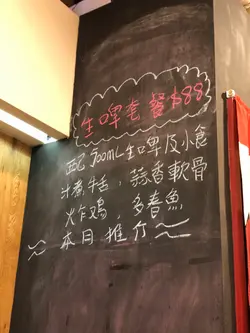 生啤套餐$88
配500mL生啤及小食
汁煮牛舌，蒜香軟骨
炸鸡，多春魚
本日推介